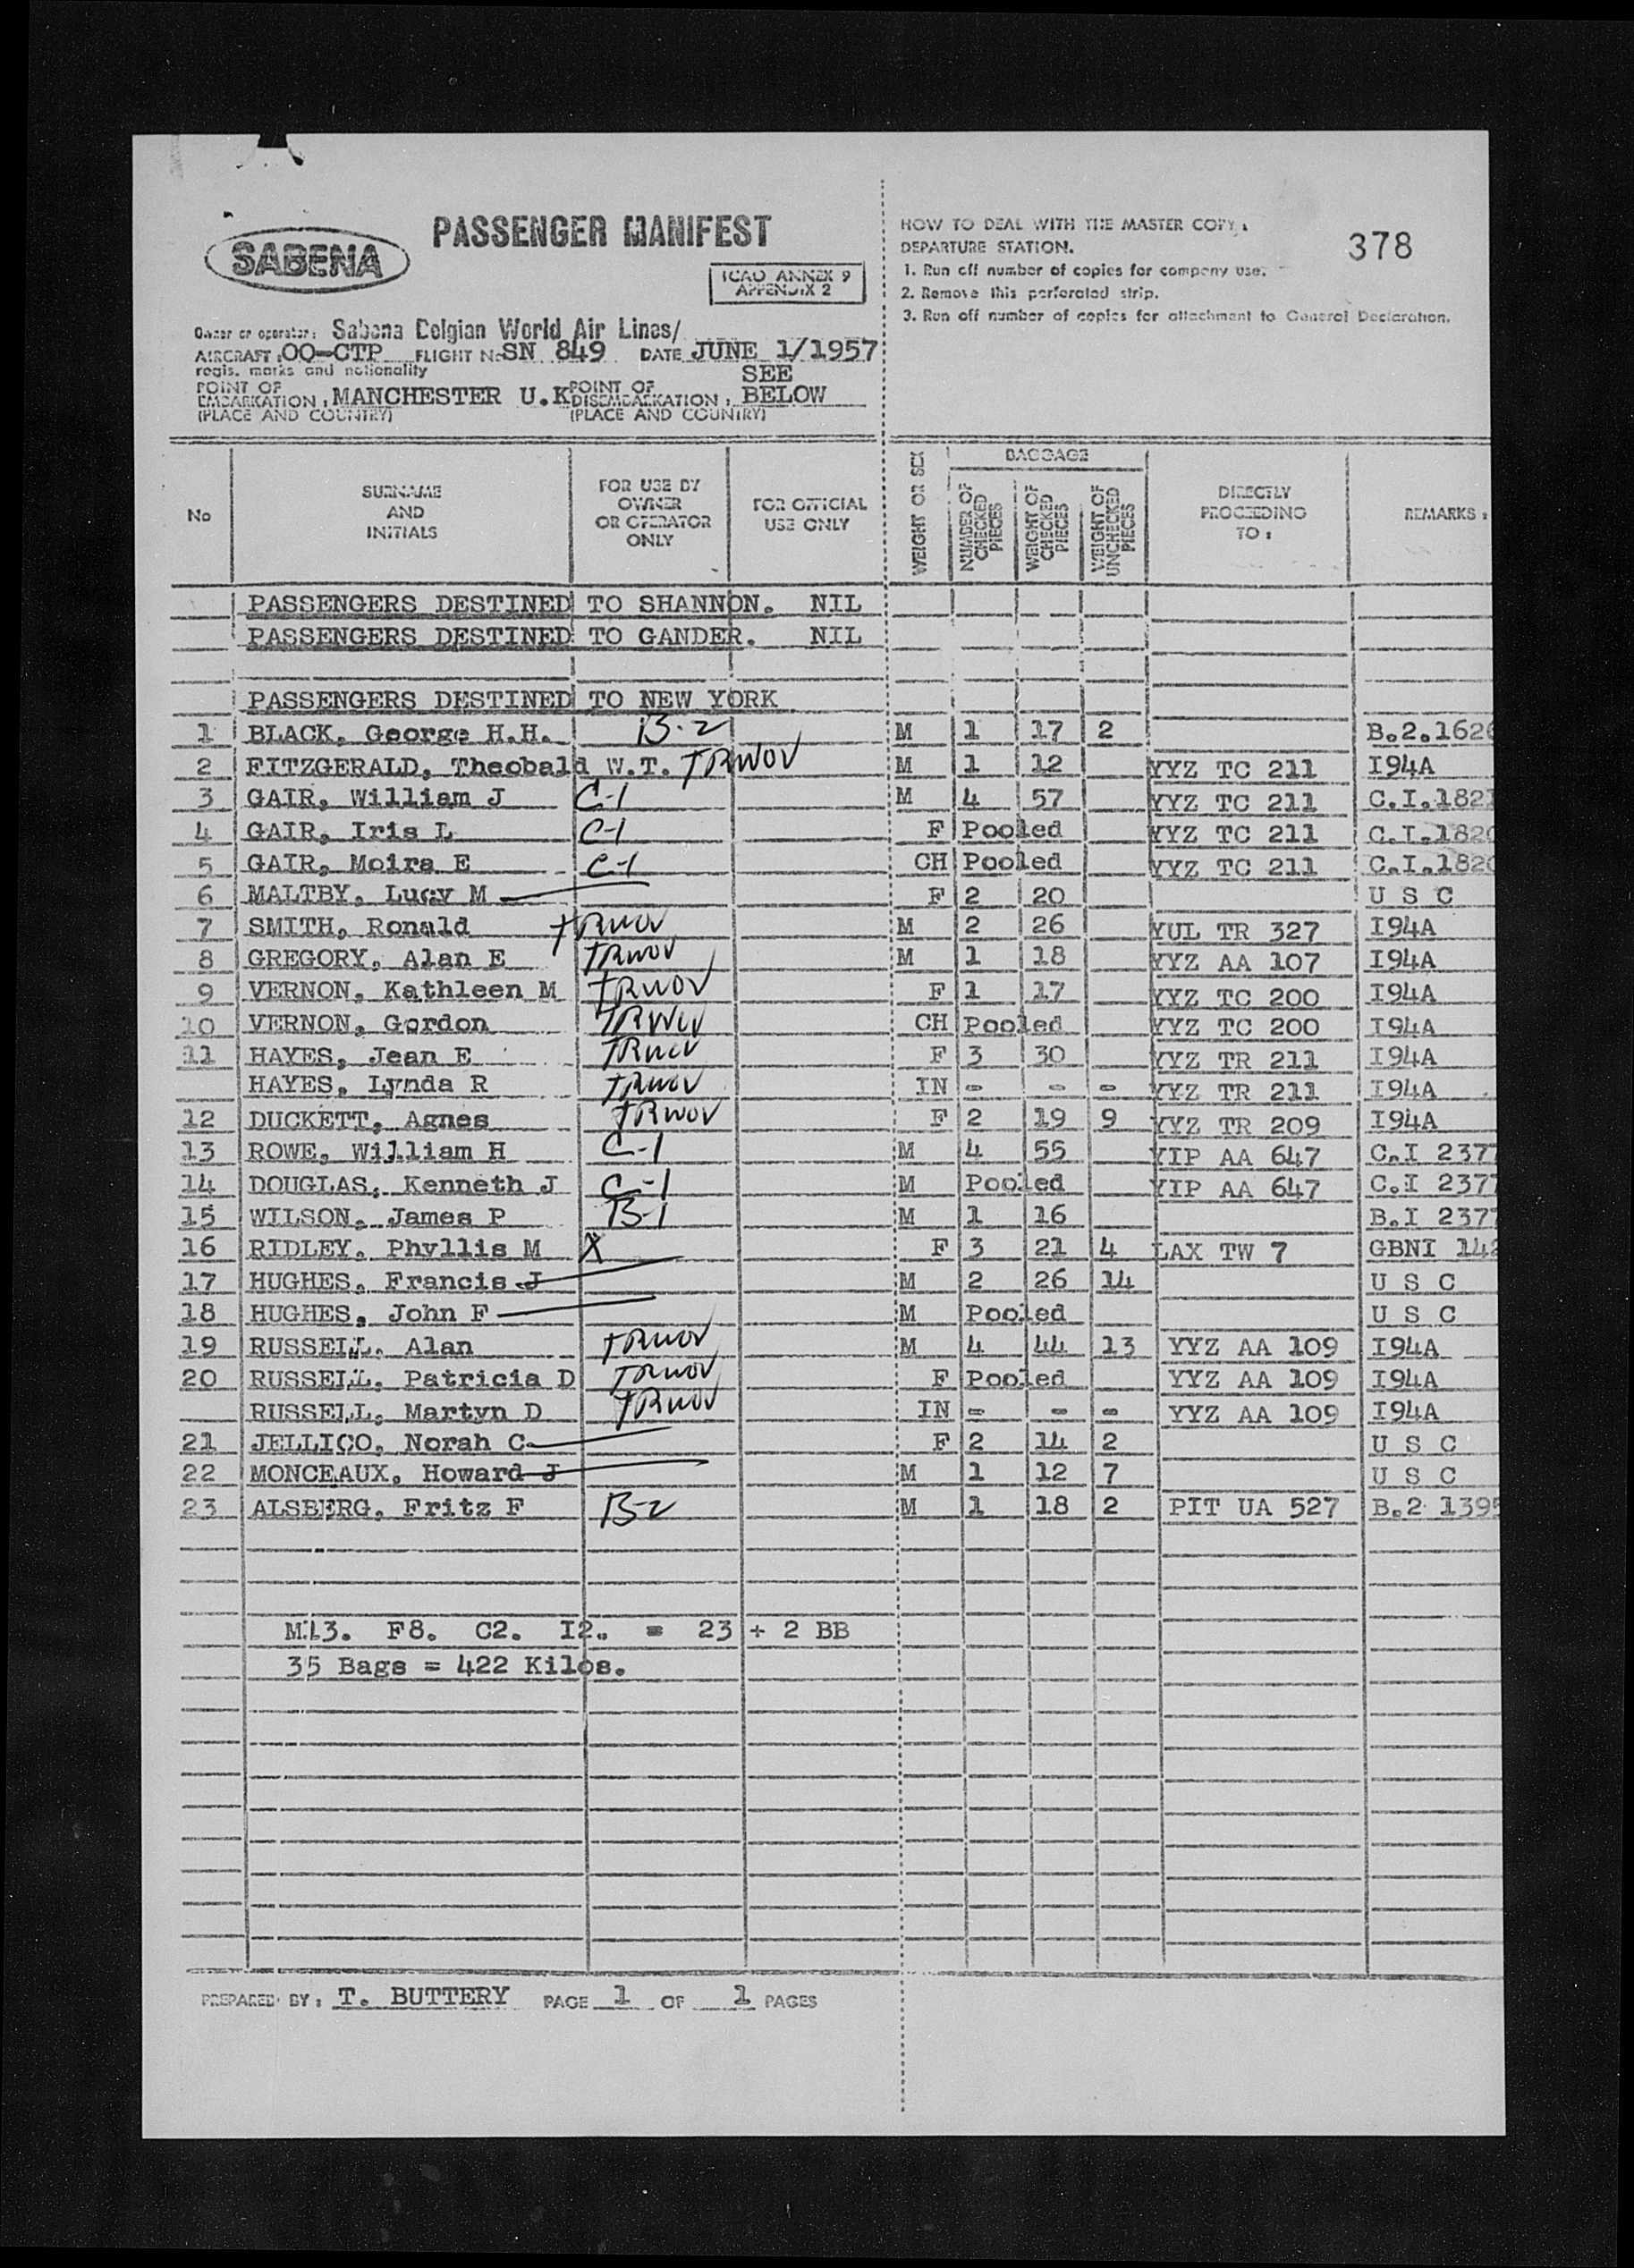 SABENA
PASSENGER MANIFEST
ICAO ANNEX 9
APPENDIX 2
HOW TO DEAL WITH THE MASTER COPY.
DEPARTURE STATION.
1. Run off number of copies for company use.
2. Remove this perforated strip.
3. Run off number of copies for attachment to General Declaration.
378
Owner or operator: Sabena Belgian World Air Lines/
AIRCRAFT: OO-CTP FLIGHT No SN 849 DATE JUNE 1/1957
regis. marks and nationality
POINT OF EMBARKATION: MANCHESTER U.K POINT OF DISEMBARKATION: SEE BELOW
(PLACE AND COUNTRY) (PLACE AND COUNTRY)
No SURNAME AND INITIALS FOR USE BY OWNER OR OPERATOR ONLY FOR OFFICIAL USE ONLY WEIGHT OR SEX BAGGAGE NUMBER OF CHECKED PIECES WEIGHT OF CHECKED PIECES WEIGHT OF UNCHECKED PIECES DIRECTLY PROCEEDING TO: REMARKS:
PASSENGERS DESTINED TO SHANNON. NIL
PASSENGERS DESTINED TO GANDER. NIL
PASSENGERS DESTINED TO NEW YORK
1 BLACK, George H.H. B-2 M 1 17 2 B.2.1620
2 FITZGERALD, Theobald W.T. TRWOV M 1 12 YYZ TC 211 I94A
3 GAIR, William J C-1 M 4 57 YYZ TC 211 C.I.1821
4 GAIR, Iris L C-1 F Pooled YYZ TC 211 C.I.1820
5 GAIR, Moira E C-1 CH Pooled YYZ TC 211 C.I.1820
6 MALTBY, Lucy M F 2 20 U S C
7 SMITH, Ronald TRWOV M 2 26 YUL TR 327 I94A
8 GREGORY, Alan E TRWOV M 1 18 YYZ AA 107 I94A
9 VERNON, Kathleen M TRWOV F 1 17 YYZ TC 200 I94A
10 VERNON, Gordon TRWOV CH Pooled YYZ TC 200 I94A
11 HAYES, Jean E TRWOV F 3 30 YYZ TR 211 I94A
HAYES, Lynda R TRWOV IN - - - YYZ TR 211 I94A
12 DUCKETT, Agnes TRWOV F 2 19 9 YYZ TR 209 I94A
13 ROWE, William H C-1 M 4 55 YIP AA 647 C.I 2377
14 DOUGLAS, Kenneth J C-1 M Pooled YIP AA 647 C.I 2377
15 WILSON, James P B-1 M 1 16 B.I 2377
16 RIDLEY, Phyllis M X F 3 21 4 LAX TW 7 GBNI 142
17 HUGHES, Francis J M 2 26 14 U S C
18 HUGHES, John F M Pooled U S C
19 RUSSELL, Alan TRWOV M 4 44 13 YYZ AA 109 I94A
20 RUSSELL, Patricia D TRWOV F Pooled YYZ AA 109 I94A
RUSSELL, Martyn D TRWOV IN - - - YYZ AA 109 I94A
21 JELLICO, Norah C F 2 14 2 U S C
22 MONCEAUX, Howard J M 1 12 7 U S C
23 ALSBERG, Fritz F B-2 M 1 18 2 PIT UA 527 B.2 1395
M13. F8. C2. I2. = 23 + 2 BB
35 Bags = 422 Kilos.
PREPARED BY: T. BUTTERY PAGE 1 OF 1 PAGES